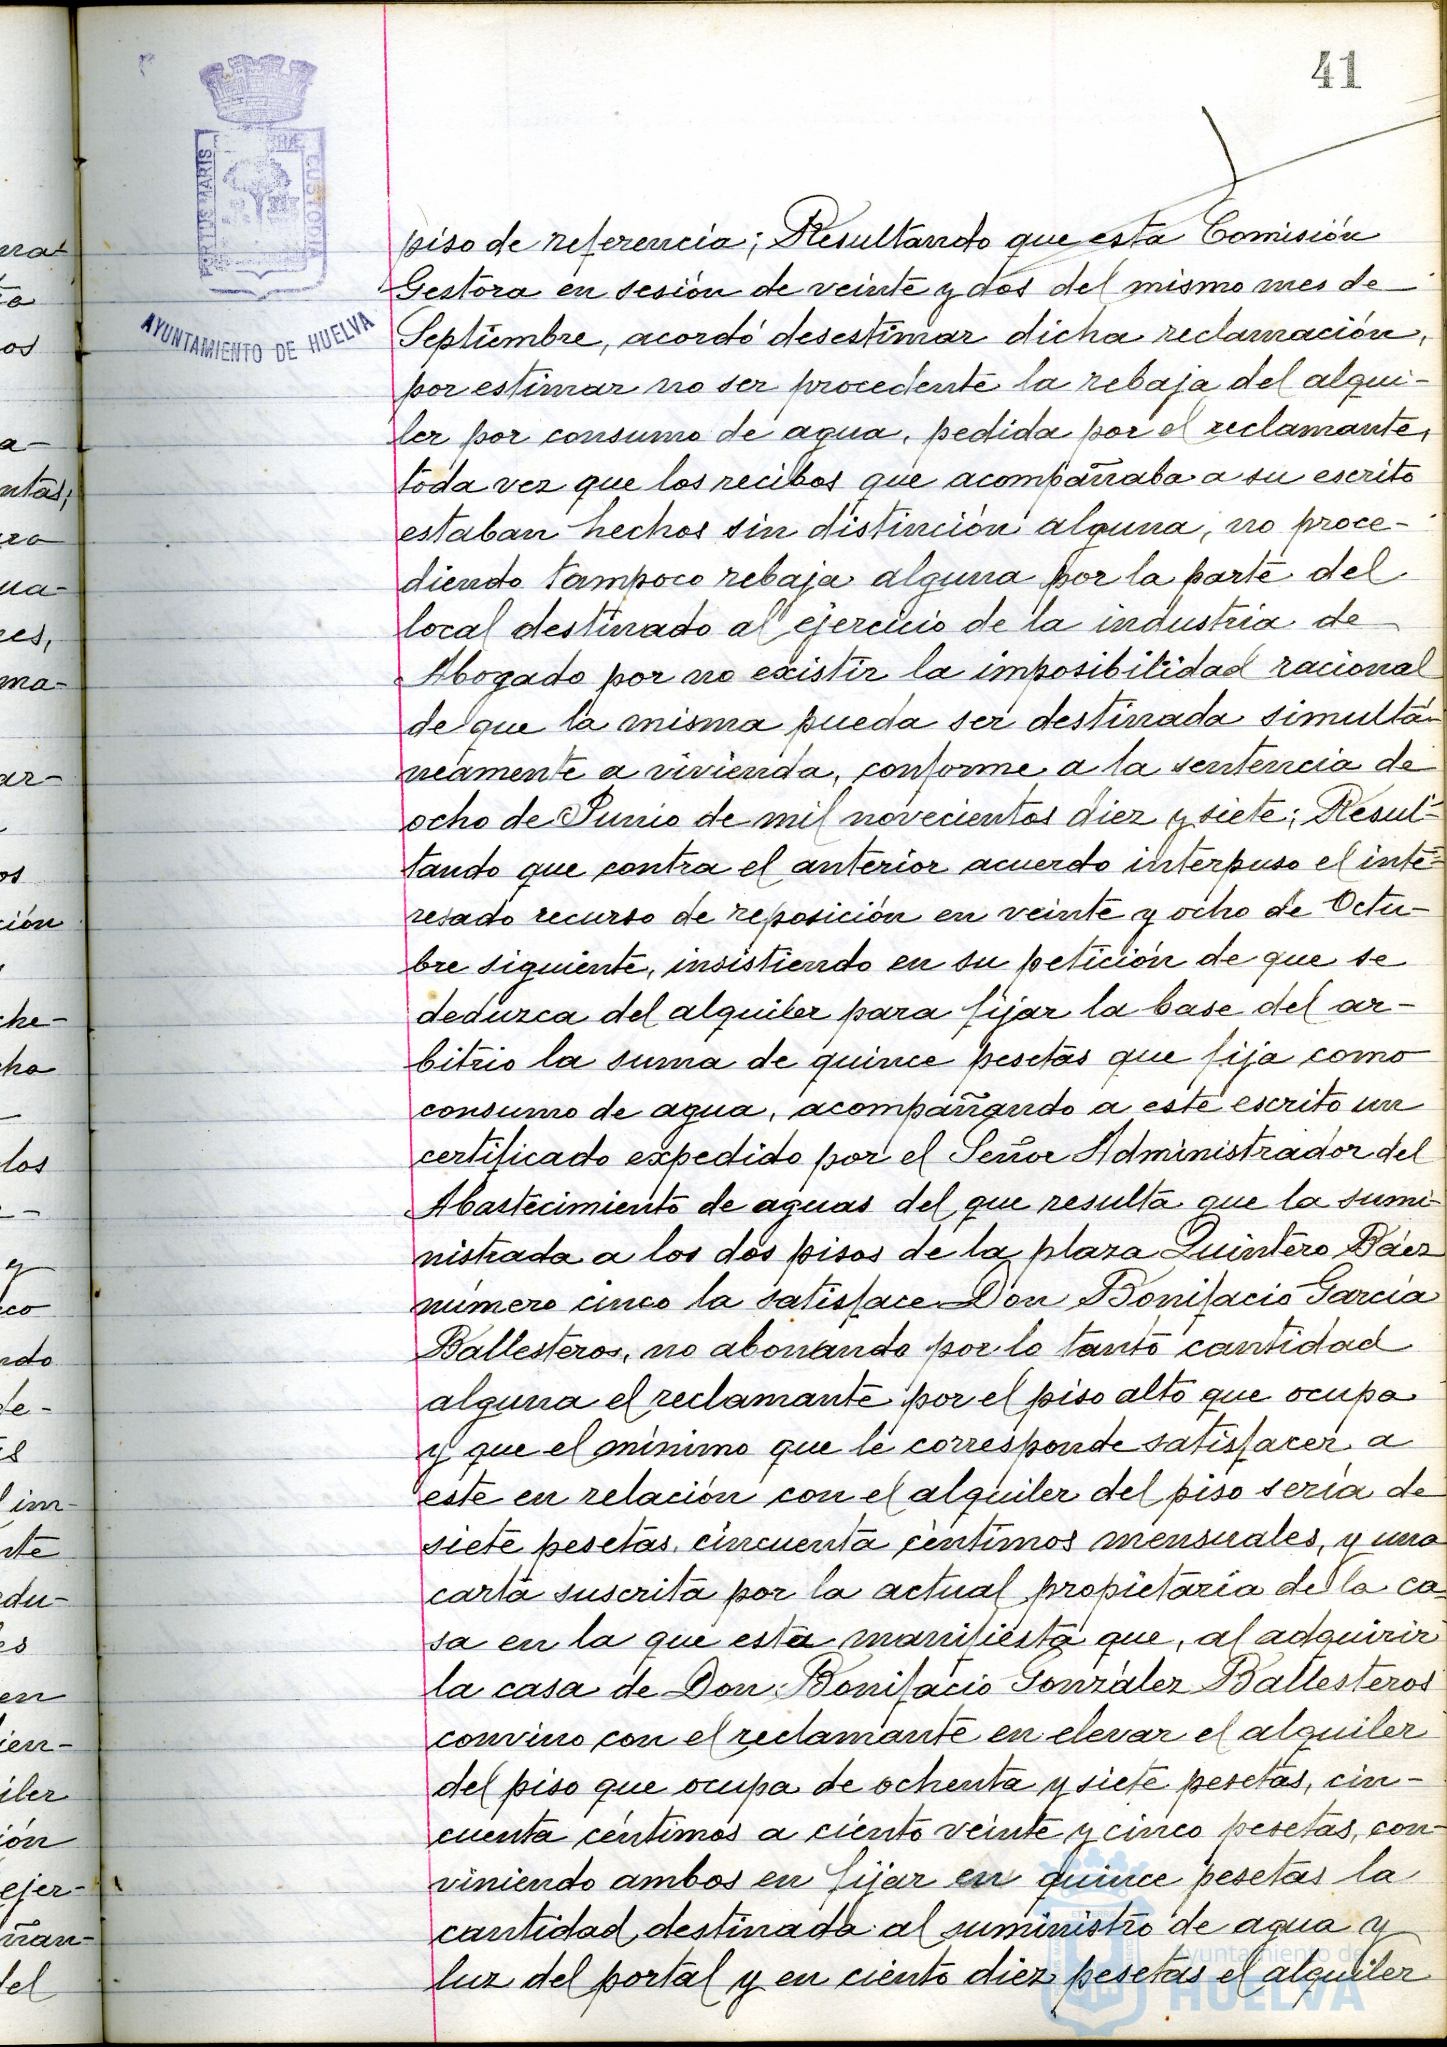 41
PORTUS MARIS
CUSTODIA
AYUNTAMIENTO DE HUELVA
piso de referencia; Resultando que esta Comisión
Gestora en sesión de veinte y dos del mismo mes de
Septiembre, acordó desestimar dicha reclamación,
por estimar no ser procedente la rebaja del alqui-
ler por consumo de agua, pedida por el reclamante,
toda vez que los recibos que acompañaba a su escrito
estaban hechos sin distinción alguna, no proce-
diendo tampoco rebaja alguna por la parte del
local destinado al ejercicio de la industria de
Abogado por no existir la imposibilidad racional
de que la misma pueda ser destinada simultá-
neamente a vivienda, conforme a la sentencia de
ocho de Junio de mil novecientos diez y siete; Resul-
tando que contra el anterior acuerdo interpuso el inte-
resado recurso de reposición en veinte y ocho de Octu-
bre siguiente, insistiendo en su petición de que se
deduzca del alquiler para fijar la base del ar-
bitrio la suma de quince pesetas que fija como
consumo de agua, acompañando a este escrito un
certificado expedido por el Señor Administrador del
Abastecimiento de aguas del que resulta que la sumi-
nistrada a los dos pisos de la plaza Quintero Báez
número cinco la satisface Don Bonifacio García
Ballesteros, no abonando por lo tanto cantidad
alguna el reclamante por el piso alto que ocupa
y que el mínimo que le corresponde satisfacer a
este en relación con el alquiler del piso sería de
siete pesetas, cincuenta céntimos mensuales, y una
carta suscrita por la actual propietaria de la ca-
sa en la que esta manifiesta que, al adquirir
la casa de Don Bonifacio González Ballesteros
convino con el reclamante en elevar el alquiler
del piso que ocupa de ochenta y siete pesetas, cin-
cuenta céntimos a ciento veinte y cinco pesetas, con-
viniendo ambos en fijar en quince pesetas la
cantidad destinada al suministro de agua y
luz del portal y en ciento diez pesetas el alquiler
Ayuntamiento de
HUELVA